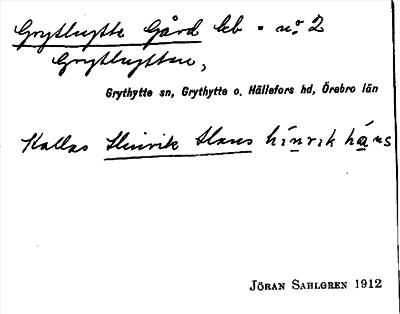 Grythytte Gård leb - nº 2
Grythyttan,
Grythytte sn, Grythytte o. Hällefors hd, Örebro län
Kallas Hinrik Hans hínrik háns
JÖRAN SAHLGREN 1912